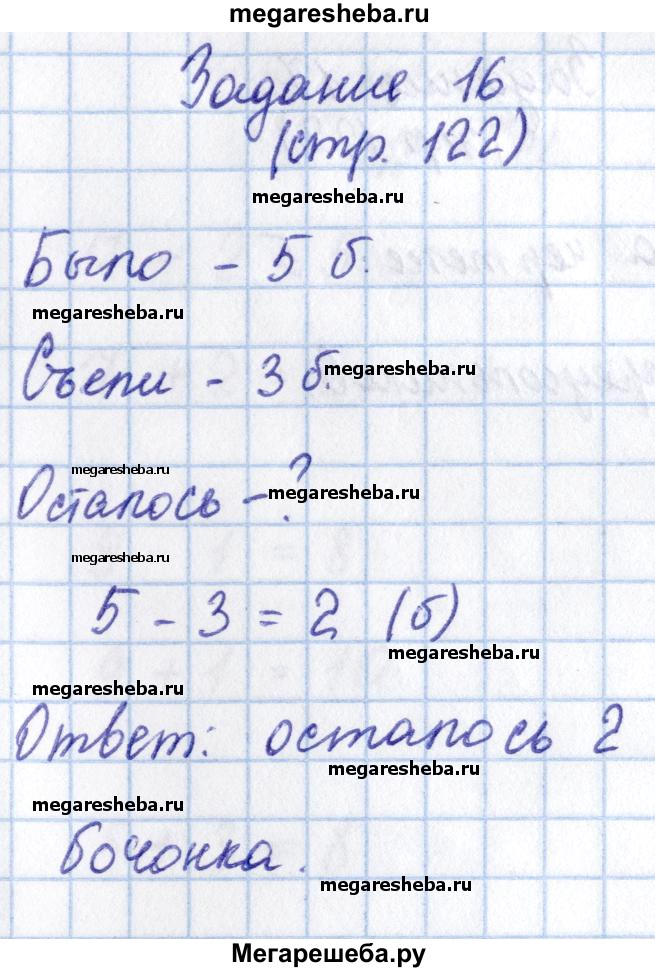 megaresheba.ru
Задание 16
(стр. 122)
megaresheba.ru
Было - 5 б.
megaresheba.ru
Съели - 3 б.
megaresheba.ru
megaresheba.ru
Осталось - ?
megaresheba.ru
megaresheba.ru
5 - 3 = 2 (б)
megaresheba.ru
megaresheba.ru
Ответ: осталось 2
megaresheba.ru
megaresheba.ru
бочонка.
megaresheba.ru
Мегарешеба.ру